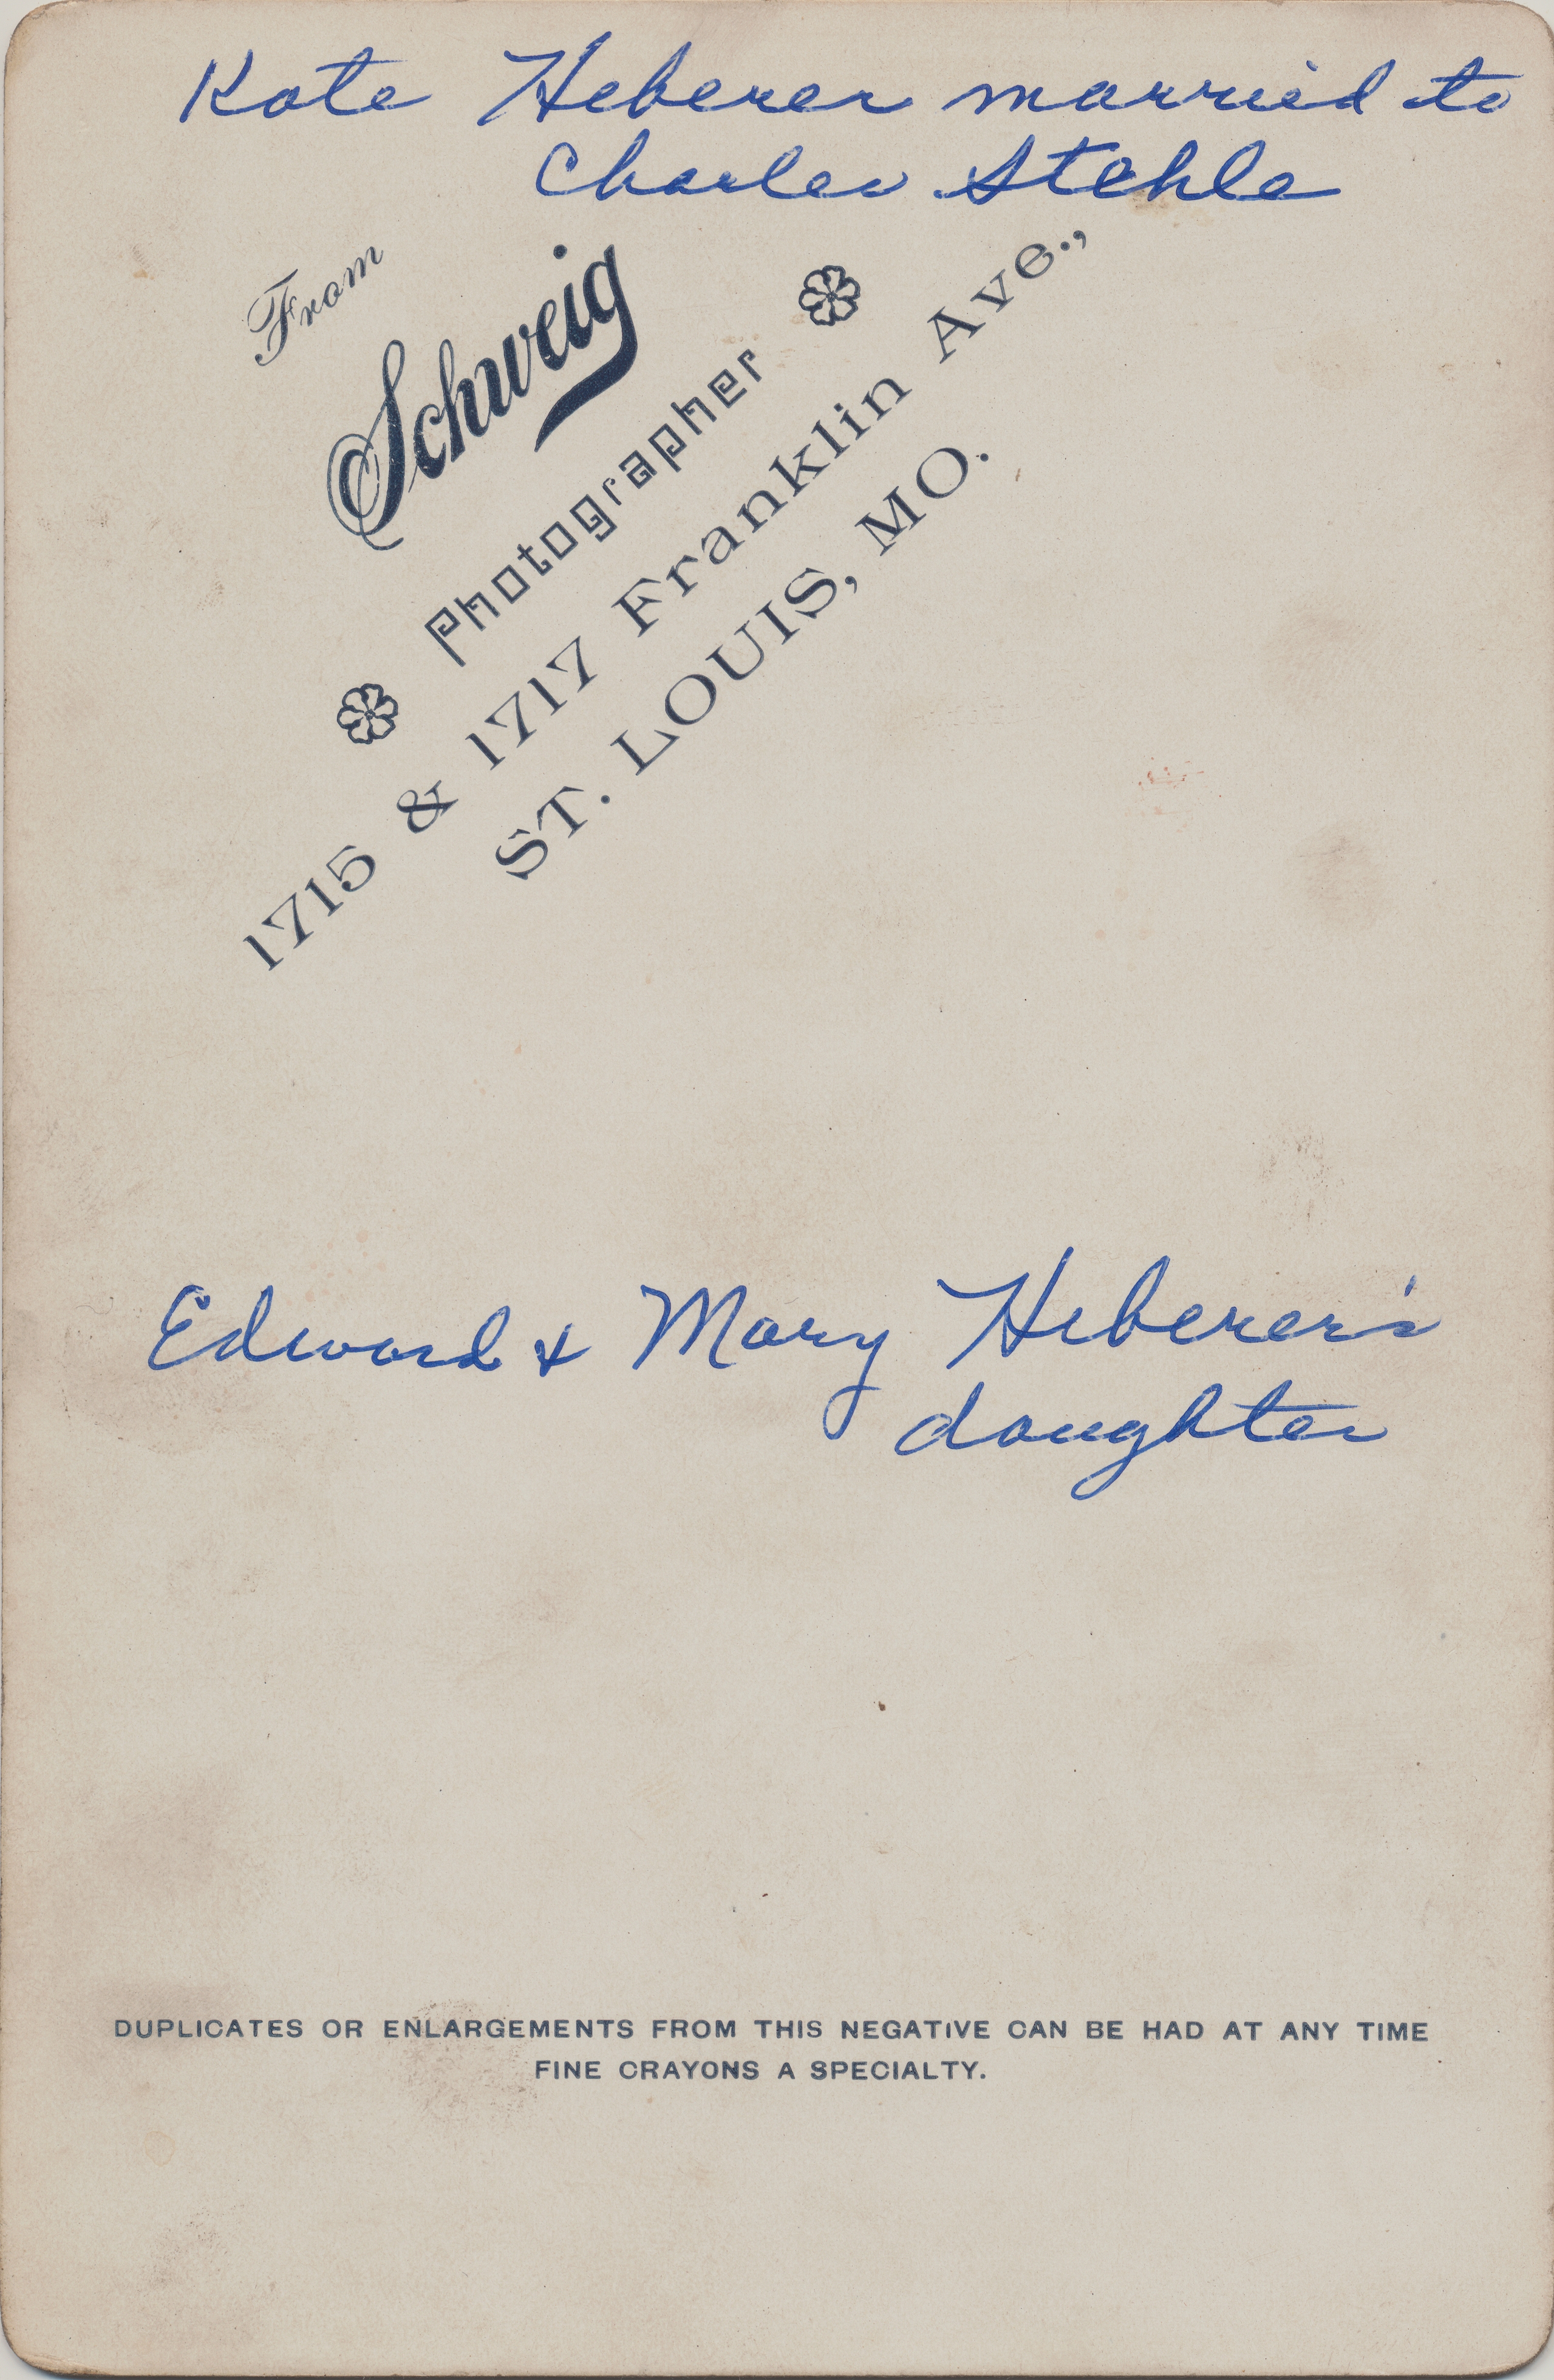 Kate Heberer married to
Charles Stehle
From
Schweig
Photographer
1715 & 1717 Franklin Ave.,
ST. LOUIS, MO.
Edward & Mary Heberer's
daughter
DUPLICATES OR ENLARGEMENTS FROM THIS NEGATIVE CAN BE HAD AT ANY TIME
FINE CRAYONS A SPECIALTY.